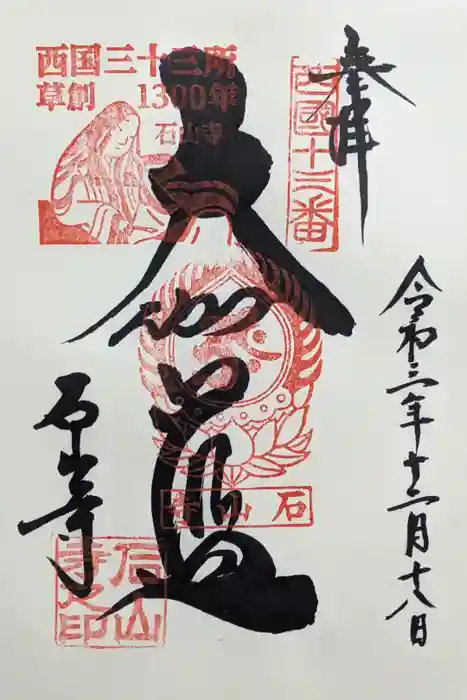 奉拝
西國十三番
令和三年十二月十八日
西国三十三所
草創 1300年
石山寺
大伽藍
石山寺
石山寺
石山
寺之印